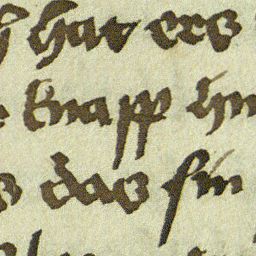 hat ers
knapp hin
das sin